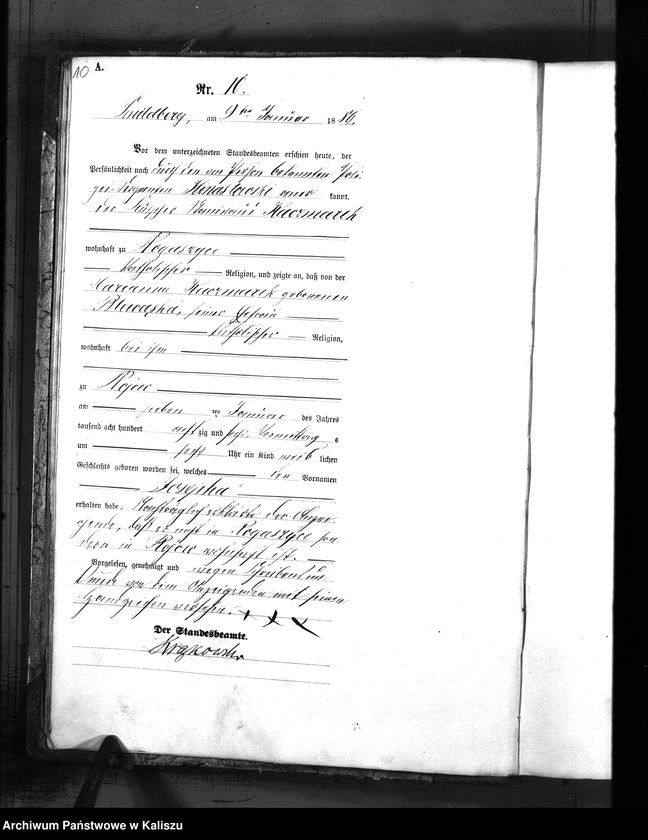 10 A.
Nr. 10.
Schildberg, am 9ten Januar 1886.
Vor dem unterzeichneten Standesbeamten erschien heute, der
Persönlichkeit nach durch den von Person bekannten Poli-
zei Sergeanten aner kannt,
der Stanislaus Kaczmarek
wohnhaft zu Rogaszyce
katholischer Religion, und zeigte an, daß von der
Marianna Kaczmarek geborenen
seiner Ehefrau
katholischer Religion,
wohnhaft bei ihm
zu Rojow
am sieben ten Januar des Jahres
tausend acht hundert acht zig und sechs Vormittag s
um sechs Uhr ein Kind weib lichen
Geschlechts geboren worden sei, welches den Vornamen
Josepha
erhalten habe. Nachträglich erklärte der Anzei-
gende, daß er nicht in Rogaszyce son
dern in Rojow wohnhaft ist.
Vorgelesen, genehmigt und wegen Schreibens un
kunde von dem Anzeigenden mit seinen
Handzeichen versehen. + + +
Der Standesbeamte.
Archiwum Państwowe w Kaliszu